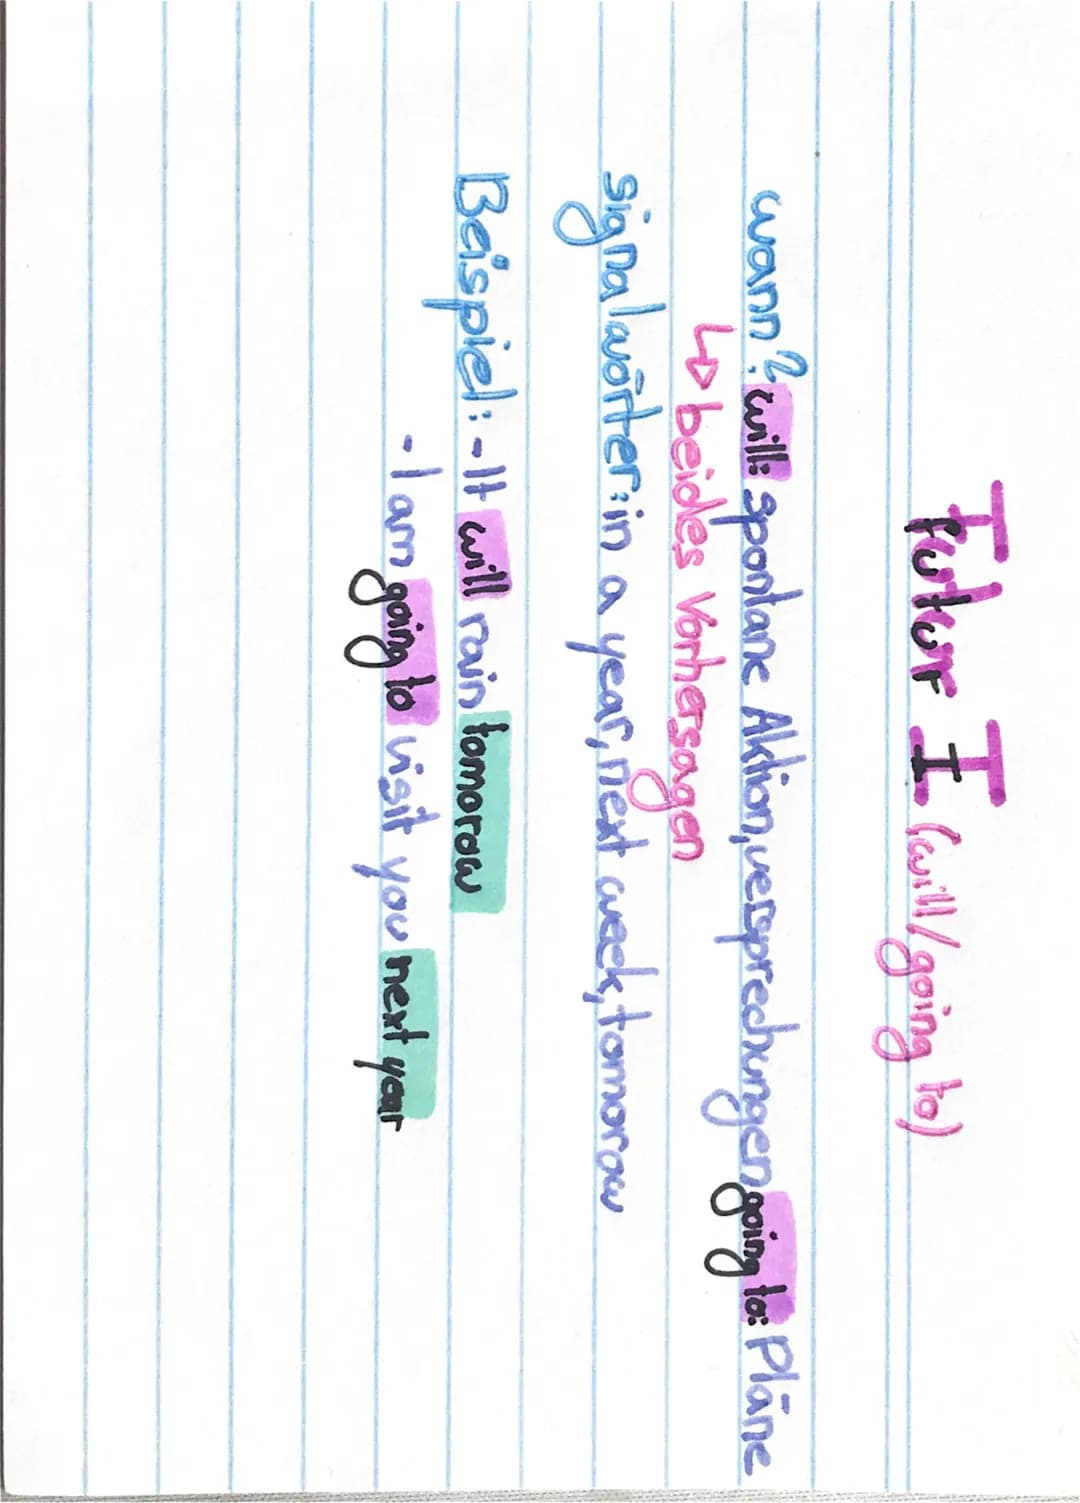 Futur I (will/going to)
wann? will: spontane Aktion, versprechungen going to: Pläne
↳ beides Vorhersagen
signalwörter: in a year, next week, tomorow
Beispiel: - It will rain tomorow
- I am going to visit you next year